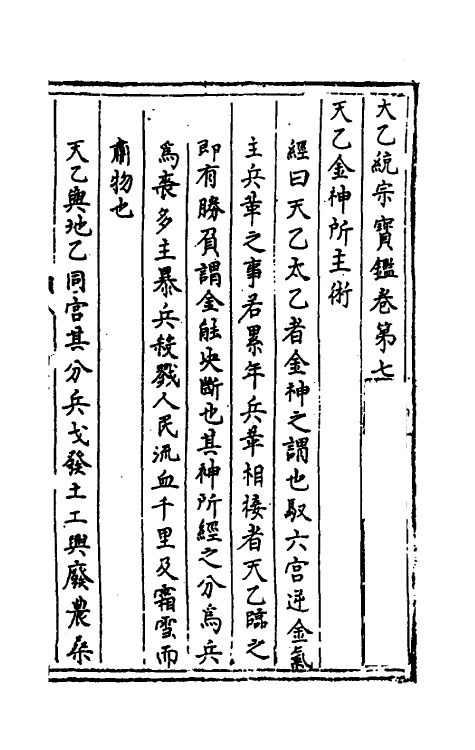 太乙統宗寶鑑卷第七
天乙金神所主術
經曰天乙太乙者金神之謂也馭六宮逆金氣
主兵革之事若累年兵革相接者天乙臨之
即有勝負謂金能決斷也其神所經之分爲兵
爲喪多主暴兵殺戮人民流血千里及霜雪而
肅物也
天乙與地乙同宮其分兵戈發土工興廢農桑